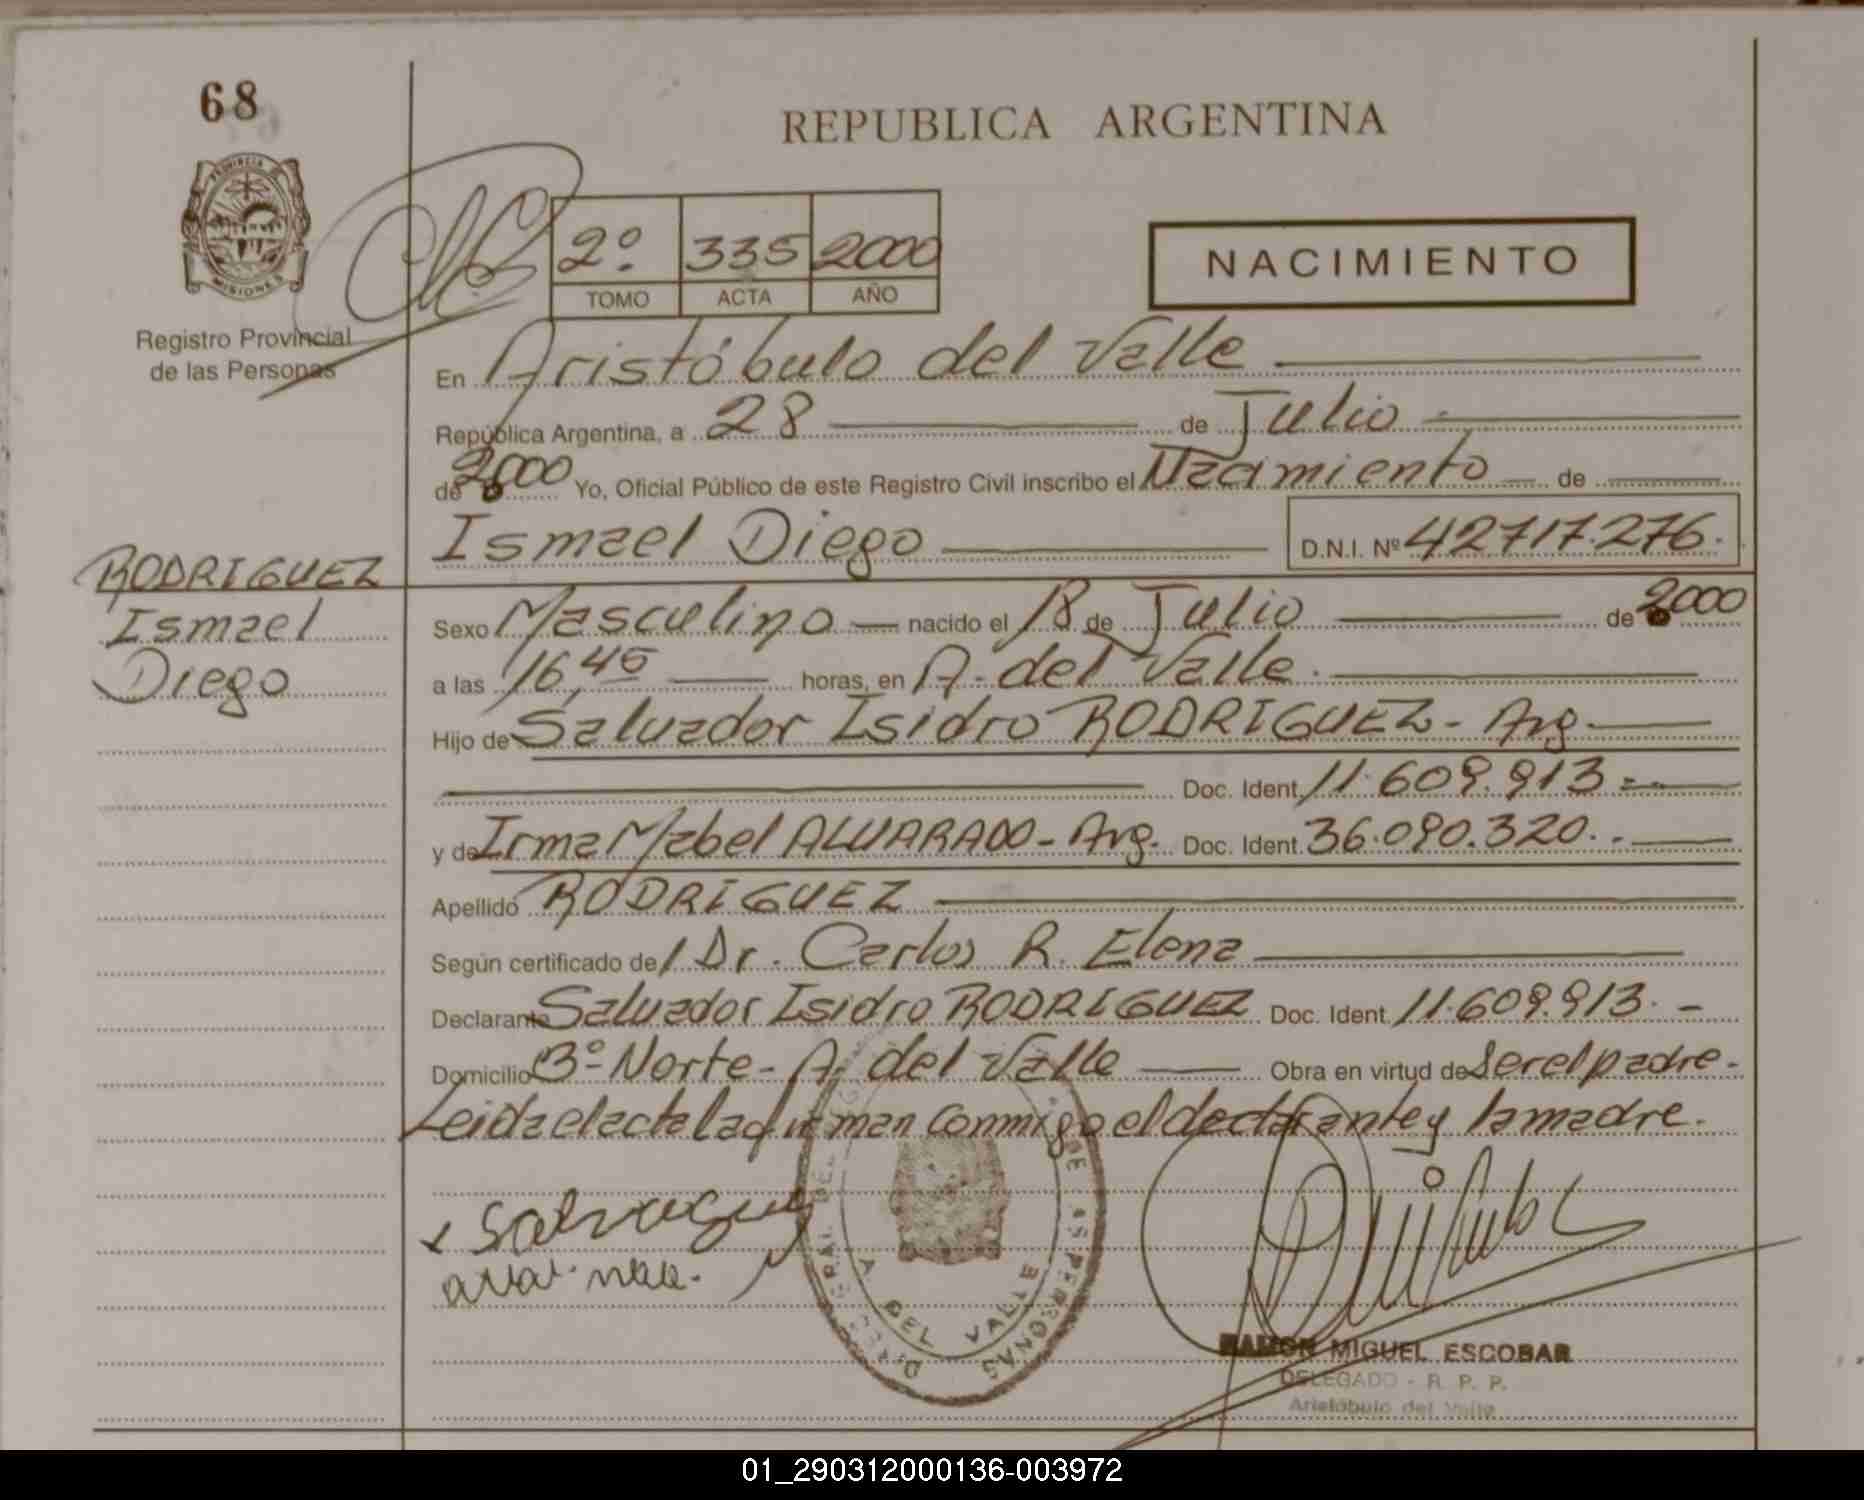 68
REPUBLICA ARGENTINA
PROVINCIA DE
MISIONES
Registro Provincial
de las Personas
2º 335 2000
TOMO ACTA AÑO
NACIMIENTO
En Aristóbulo del Valle
República Argentina, a 28 de Julio
de 2000 Yo, Oficial Público de este Registro Civil inscribo el Nacimiento de
Ismael Diego D.N.I. Nº 42717.276.
RODRIGUEZ
Ismael
Diego
Sexo Masculino nacido el 18 de Julio de 2000
a las 16,45 horas, en A. del Valle.
Hijo de Salvador Isidro RODRIGUEZ - Arg.
Doc. Ident. 11.609.913
y de Irma Mabel ALVARADO - Arg. Doc. Ident. 36.090.320.
Apellido RODRIGUEZ
Según certificado del Dr. Carlos R. Elena
Declarante Salvador Isidro RODRIGUEZ Doc. Ident. 11.609.913. -
Domicilio 3º Norte - A. del Valle Obra en virtud de Ser el padre -
Leida el acta la firman conmigo el declarante y la madre.
DE LAS PERSONAS
A. DEL VALLE
RAMON MIGUEL ESCOBAR
DELEGADO - R. P. P.
Aristóbulo del Valle
01_290312000136-003972